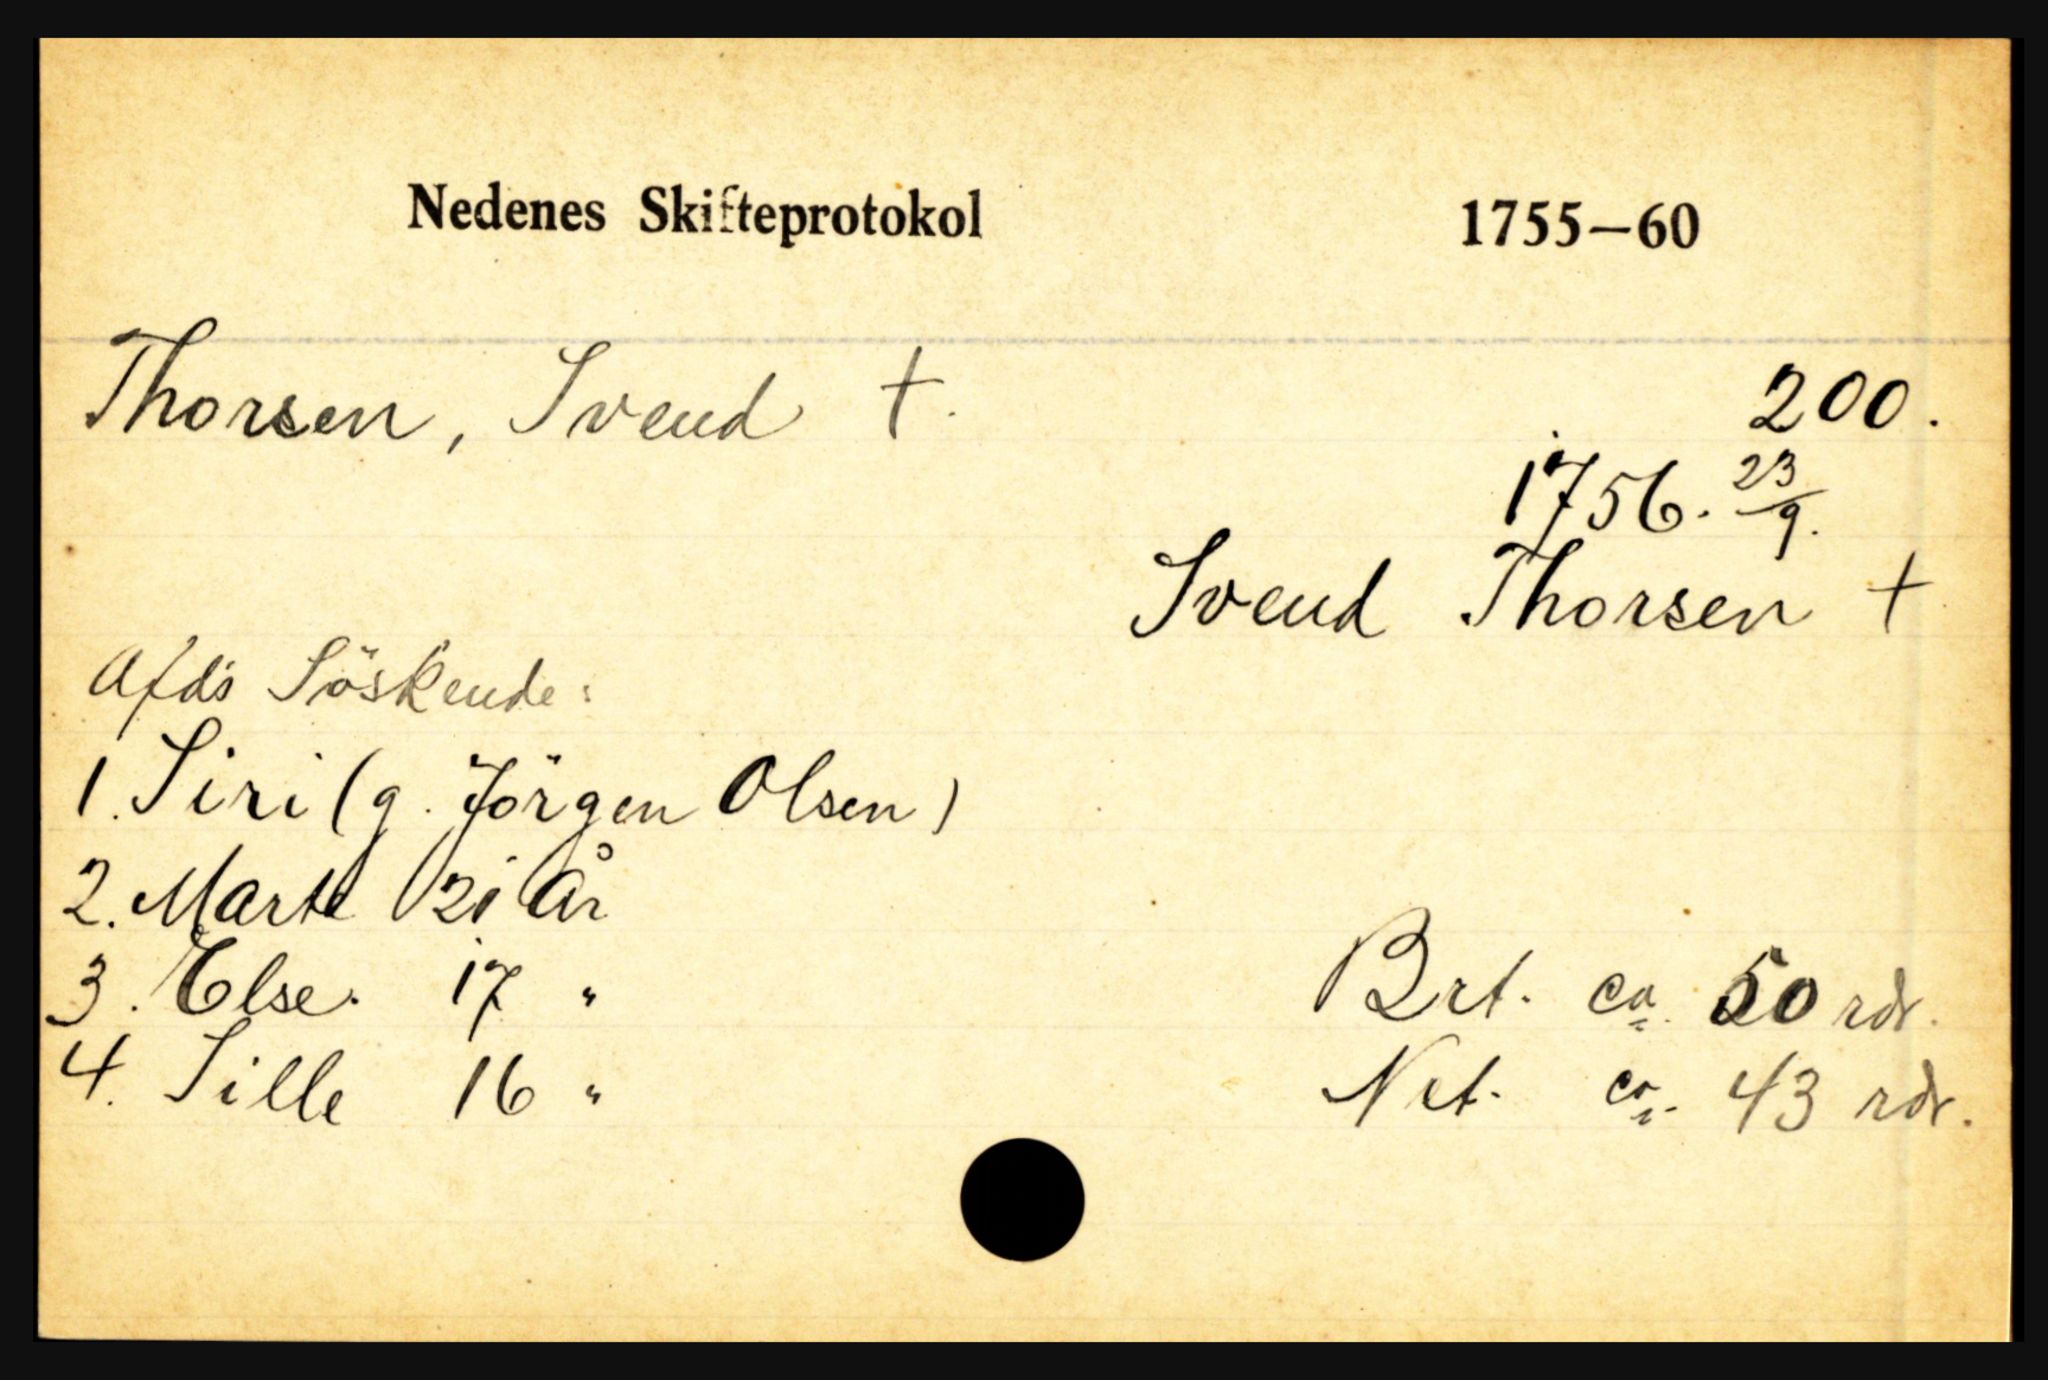 Nedenes Skifteprotokol 1755—60
Thorsen, Svend †.
200.
1756. 23/9.
Svend Thorsen †
Afd's Söskende:
1. Siri (g. Jörgen Olsen)
2. Marte 21 År
3. Else. 17 "
4. Sille 16 "
Brt. ca. 50 rdr.
Net. ca. 43 rdr.